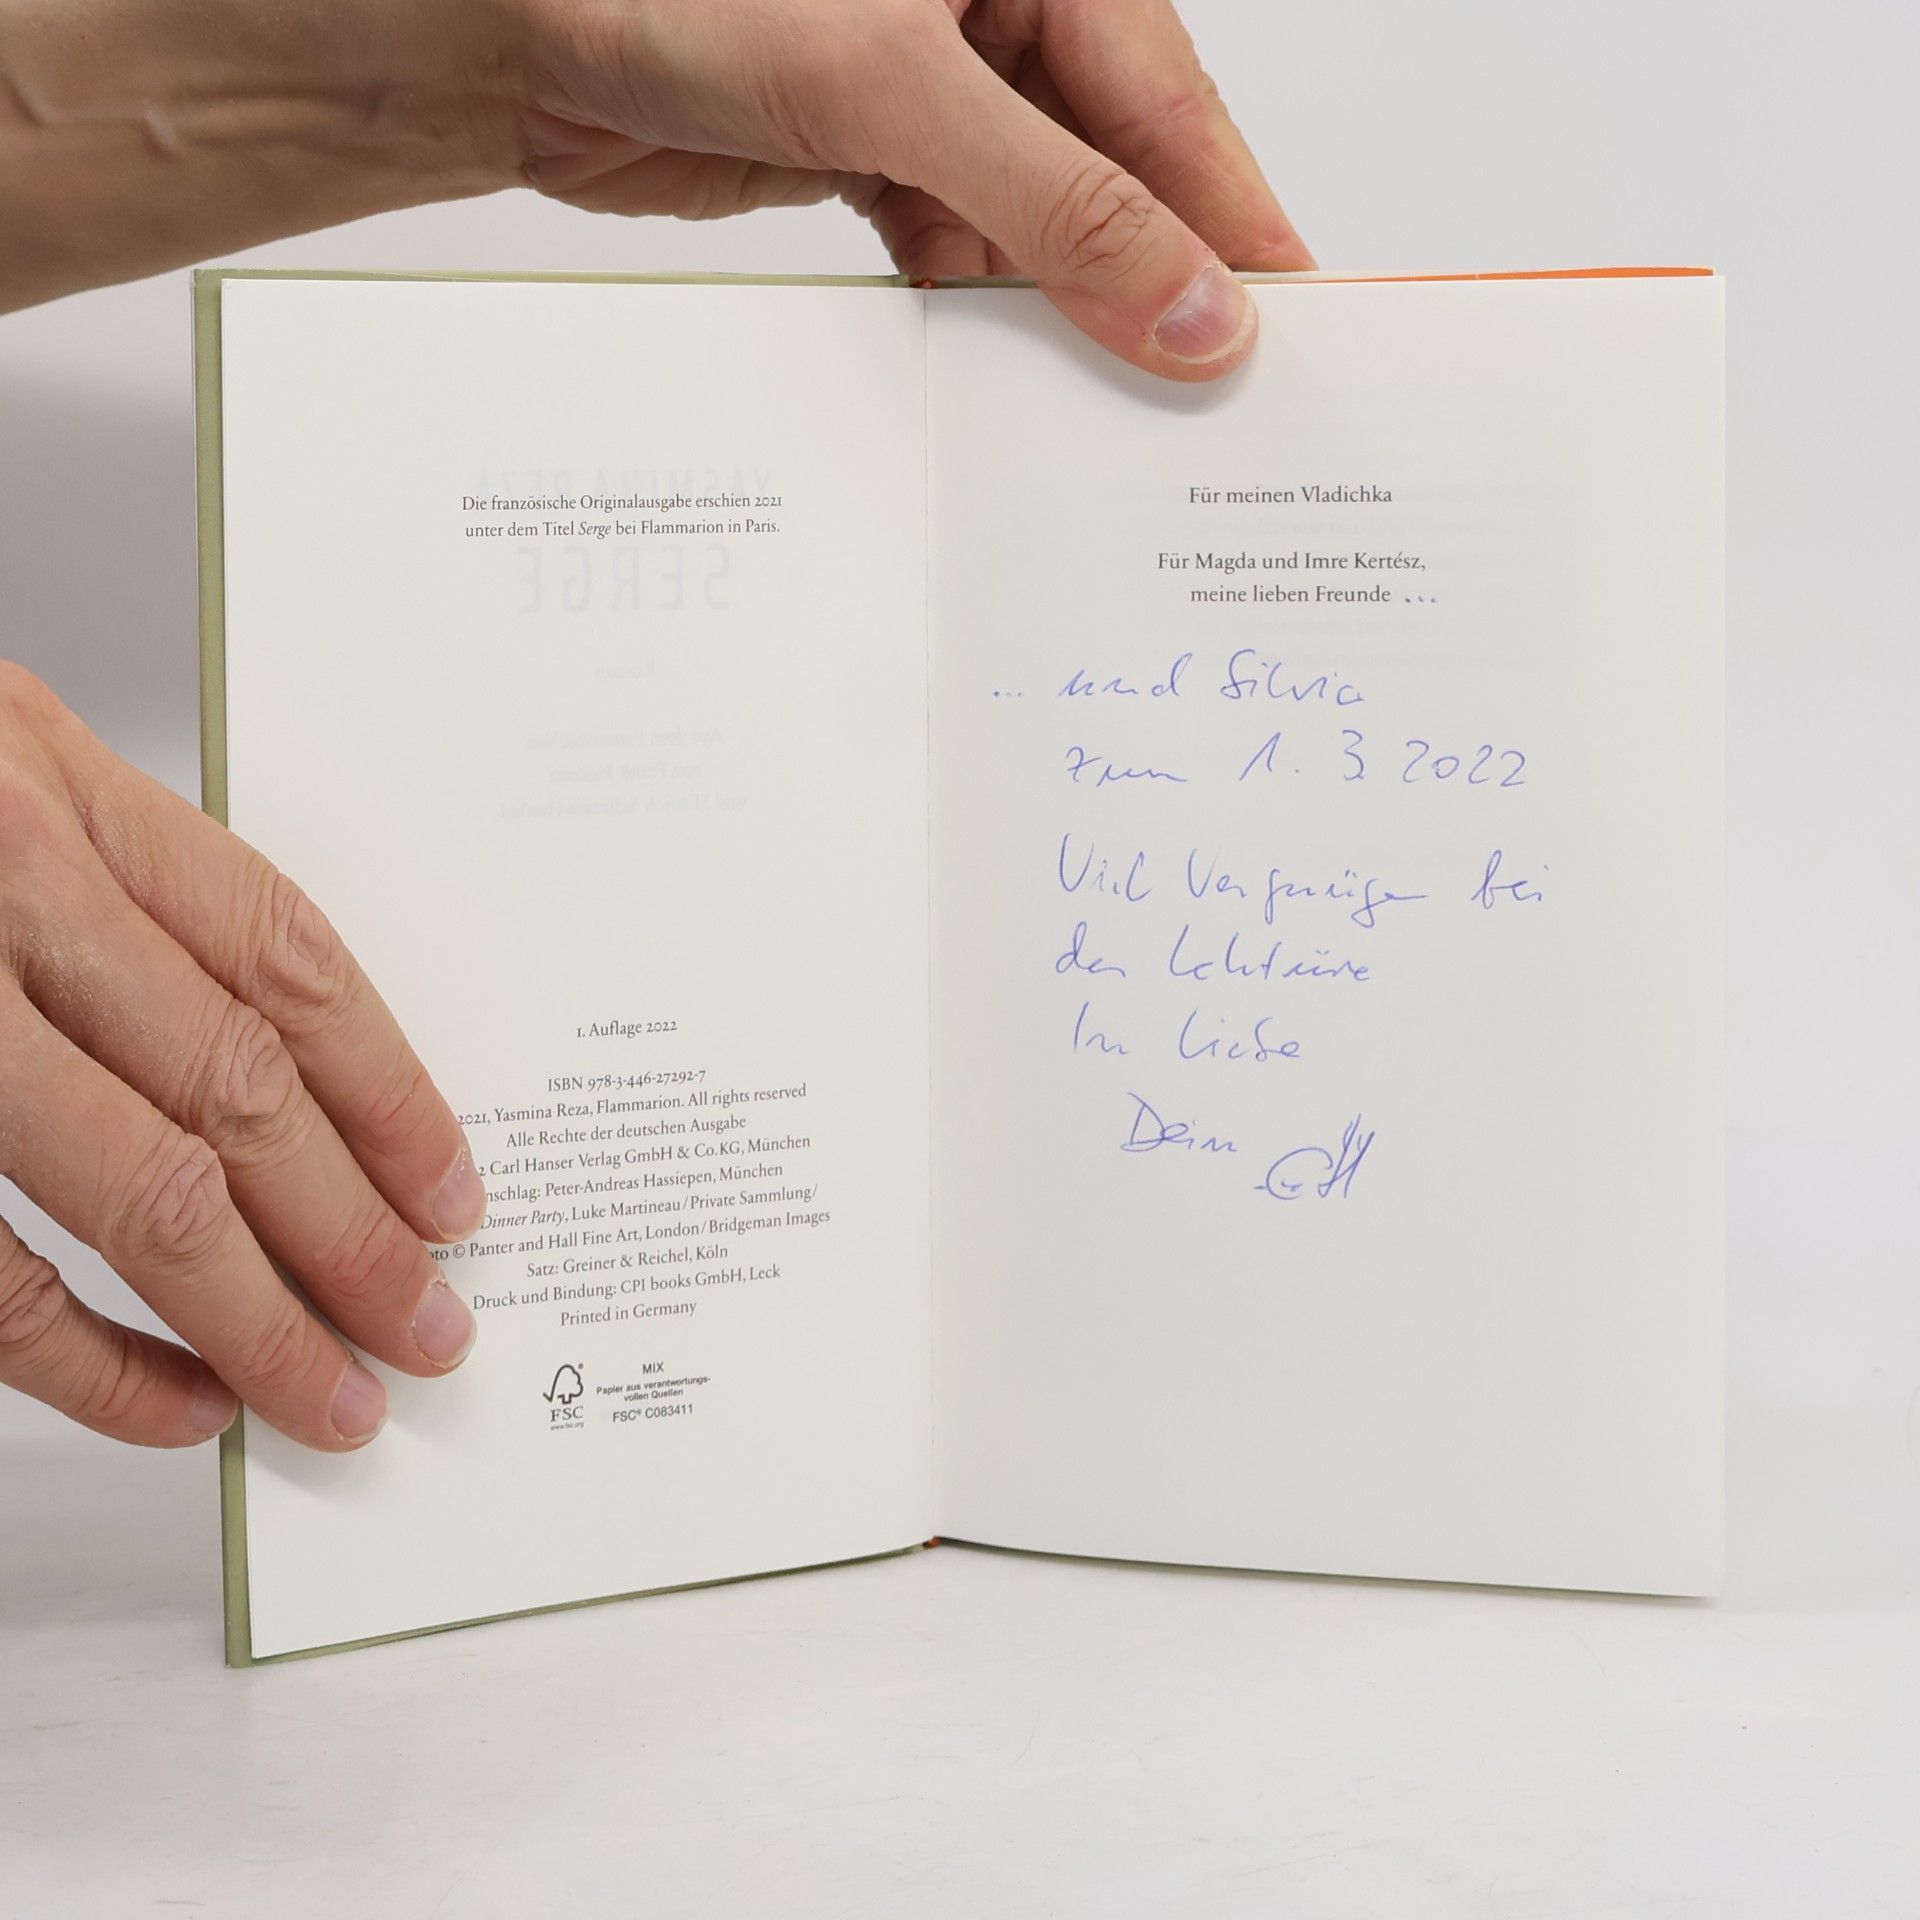 Die französische Originalausgabe erschien 2021
unter dem Titel Serge bei Flammarion in Paris.
SERGE
1. Auflage 2022
ISBN 978-3-446-27292-7
2021, Yasmina Reza, Flammarion. All rights reserved
Alle Rechte der deutschen Ausgabe
2 Carl Hanser Verlag GmbH & Co. KG, München
nschlag: Peter-Andreas Hassiepen, München
Dinner Party, Luke Martineau / Private Sammlung/
oto © Panter and Hall Fine Art, London / Bridgeman Images
Satz: Greiner & Reichel, Köln
Druck und Bindung: CPI books GmbH, Leck
Printed in Germany
FSC®
www.fsc.org
MIX
Papier aus verantwortungs-
vollen Quellen
FSC® C083411
Für meinen Vladichka
Für Magda und Imre Kertész,
meine lieben Freunde ...
... und Silvia
zum 1. 3. 2022
Viel Vergnügen bei
der Lektüre
In Liebe
Dein